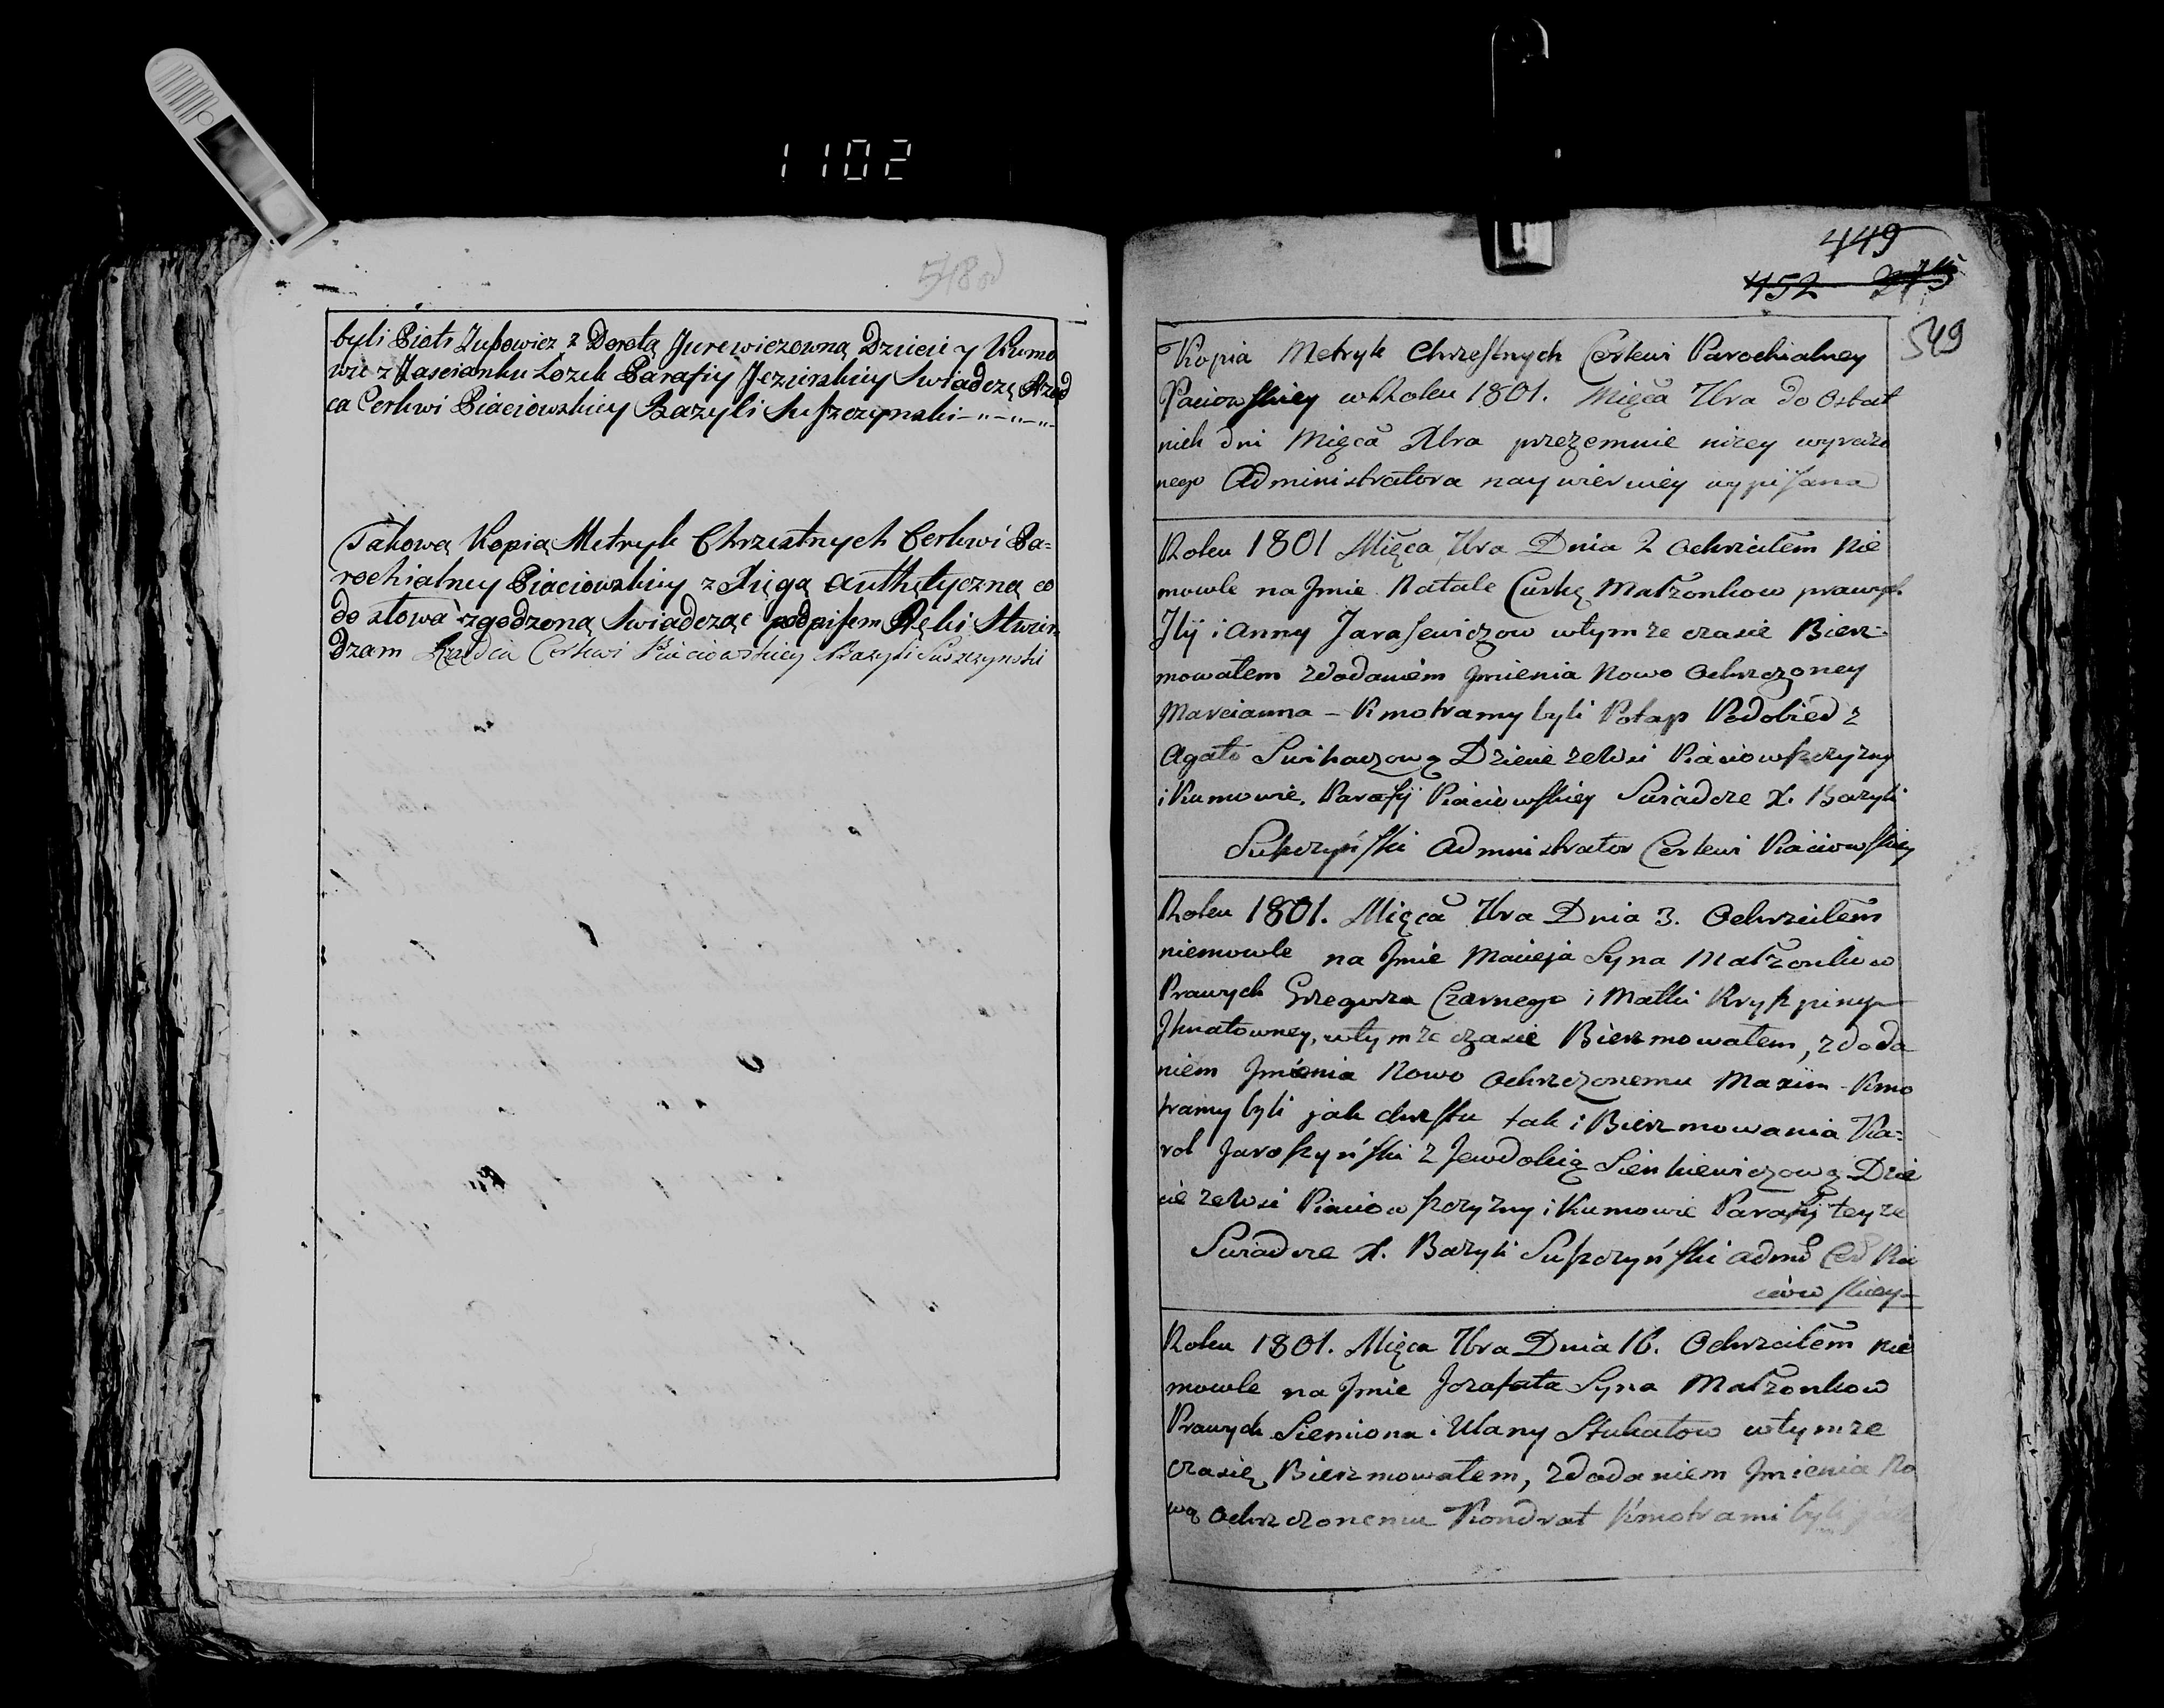 1102
548 od
byli Piotr Zubowicz z Dorotą Jurewiczowną Dzieci y Kumo
wie z Zascianku Lozek Parafiy Jezierskiey Swiadczę Rząd
ca Cerkwi Piaciowskiey Bazyli Suszczynski
Takową Kopią Metryk Chrzestnych Cerkwi Pa=
rochialney Piaciowskiey z Xięgą authętyczną co
do słowa zgodzoną Swiadcząc podpisem Ręki Stwier
dzam Rządca Cerkwi Piaciowskiey Bazyli Suszczynski
449
452 275
549
Kopia Metryk Chrzestnych Cerkwi Parochialney
Paciowskiey w Roku 1801. Mięca 7bra do Ostat
nich dni Mięca Xbra przezemnie niżey wyrażo
nego Administratora naywierniey wypisana
Roku 1801 Mięca 7bra Dnia 2 Ochrzciłem Nie
mowle na Jmie Natale Curkę Małżonkow prawych
Jlij i Anny Jarasewiczow wtymże czasie Bierz=
mowałem zdodaniem Jmienia Nowo Ochrzczoney
Marcianna - Kmotramy byli Potap Podobied z
Agatą Swikaczową Dziecie ze Wsi Piaciowszczyzny
i Kumowie, Parafij Piaciowskiey Swiadcze X. Bazyli
Suszczyński Admnistrator Cerkwi Piaciowskiey
Roku 1801. Mięca 7bra Dnia 3. Ochrzciłem
niemowle na Jmie Macieja Syna Małżonkow
Prawych Grzegorza Czarnego i Matki Kryszpiny
Jhnatowney, wtymże czasie Bierzmowałem, zdoda
niem Jmienia Nowo Ochrzczonemu Maxim - Kmo
tramy byli jak chrzstu tak i Bierzmowania Ka=
rol Jaroszyński z Jewdokią Sienkiewiczową Dzie
cie ze Wsi Piaciowszczyzny i Kumowie Parafij teyze
Swiadcze X. Bazyli Suszczyński admr Cer Pia
ciowskiey
Roku 1801. Mięca 7bra Dnia 16. Ochrzciłem Nie
mowle na Jmie Jozafata Syna Małżonkow
Prawych Siemiona i Ulany Stukałow wtymże
czasie Bierzmowałem, zdodaniem Jmienia No
wo Ochrzczonemu Kondrat Kmotrami byli jak